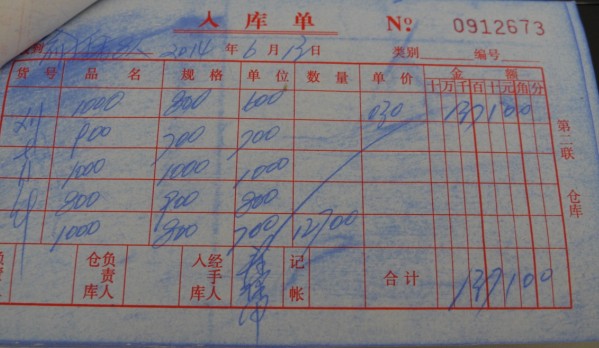 入库单 № 0912673
2014 年 6 月 13 日 类别 编号
货号 品名 规格 单位 数量 单价 金额
十万千百十元角分
1000 800 600 030 1371 00
900 700 700
1000 1000 1000
900 900 800
1000 800 700 12700
第二联 仓库
负责人 仓库负责人 入库经手人 记帐 合计 1371 00